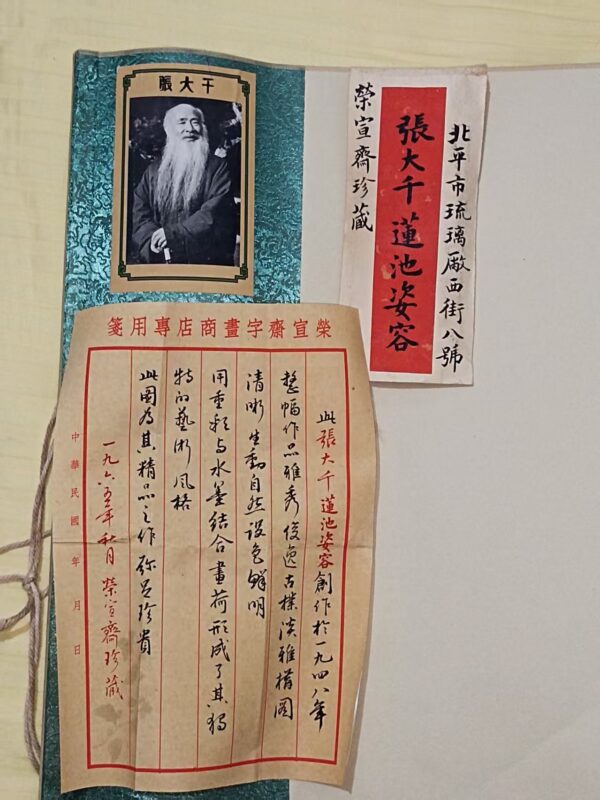 張大千
北平市琉璃廠西街八號
張大千蓮池姿容
榮宣齋珍藏
榮宣齋字畫商店專用箋
此張大千蓮池姿容創作於一九四八年
整幅作品雅秀俊逸古樸淡雅構圖
清晰生動自然设色鲜明
用重彩与水墨结合畫荷形成了其独
特的藝術風格
此图為其精品之作弥足珍貴
一九六五年秋月榮宣齋珍藏
中華民國 年 月 日